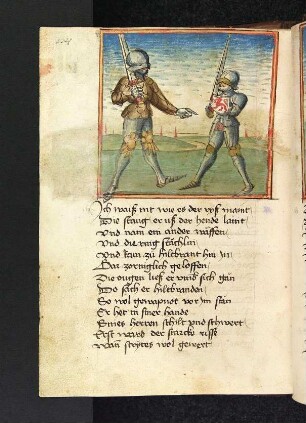 Ich waiß nit wie es der vosf mamt
Die stang er uß der hende
Und nam ein ander wäffen
Und die ring stächlin
Und kam zu hiltbrant hin in
Gar zorniglich geloffen
Die ougen ließ er umb sich gan
Do sach er hiltbranden
So wol gewapnot vor im stän
Er het in siner hande
Eines herren schilt und schwert
Erst ward der starcke risse
Wan strytes wol gewert